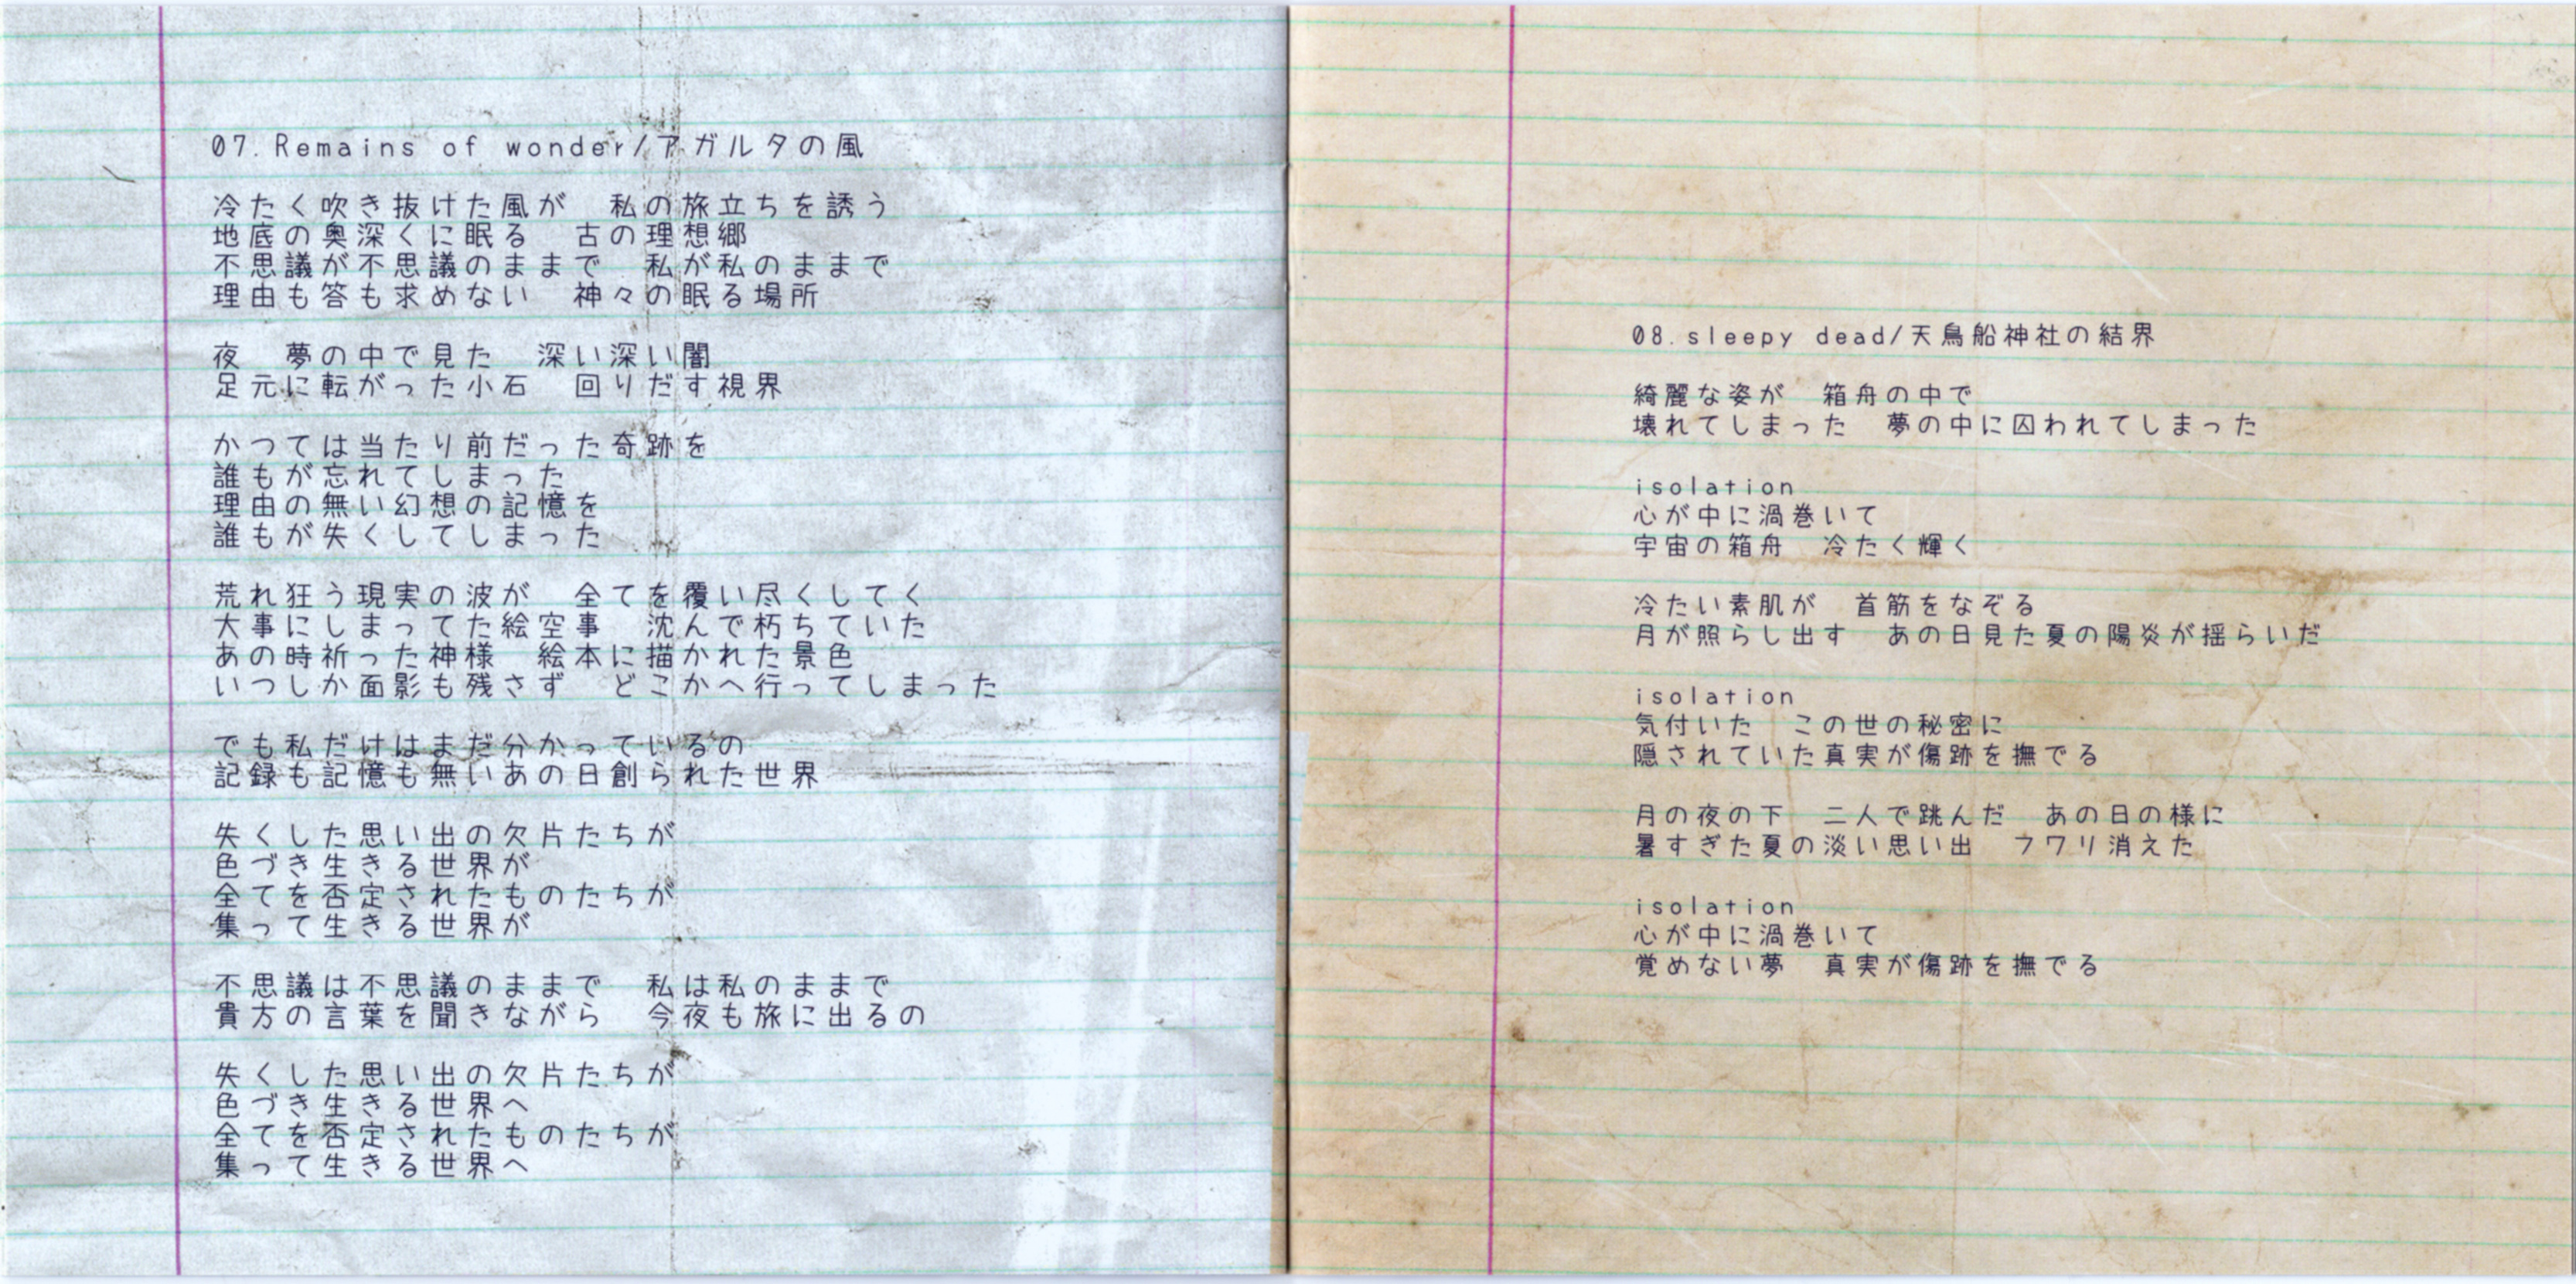 07.Remains of wonder/アガルタの風
冷たく吹き抜けた風が　私の旅立ちを誘う
地底の奥深くに眠る　古の理想郷
不思議が不思議のままで　私が私のままで
理由も答も求めない　神々の眠る場所
夜　夢の中で見た　深い深い闇
足元に転がった小石　回りだす視界
かつては当たり前だった奇跡を
誰もが忘れてしまった
理由の無い幻想の記憶を
誰もが失くしてしまった
荒れ狂う現実の波が　全てを覆い尽くしてく
大事にしまってた絵空事　沈んで朽ちていた
あの時祈った神様　絵本に描かれた景色
いつしか面影も残さず　どこかへ行ってしまった
でも私だけはまだ分かっているの
記録も記憶も無いあの日創られた世界
失くした思い出の欠片たちが
色づき生きる世界が
全てを否定されたものたちが
集って生きる世界が
不思議は不思議のままで　私は私のままで
貴方の言葉を聞きながら　今夜も旅に出るの
失くした思い出の欠片たちが
色づき生きる世界へ
全てを否定されたものたちが
集って生きる世界へ
08.sleepy dead/天鳥船神社の結界
綺麗な姿が　箱舟の中で
壊れてしまった　夢の中に囚われてしまった
isolation
心が中に渦巻いて
宇宙の箱舟　冷たく輝く
冷たい素肌が　首筋をなぞる
月が照らし出す　あの日見た夏の陽炎が揺らいだ
isolation
気付いた　この世の秘密に
隠されていた真実が傷跡を撫でる
月の夜の下　二人で跳んだ　あの日の様に
暑すぎた夏の淡い思い出　フワリ消えた
isolation
心が中に渦巻いて
覚めない夢　真実が傷跡を撫でる